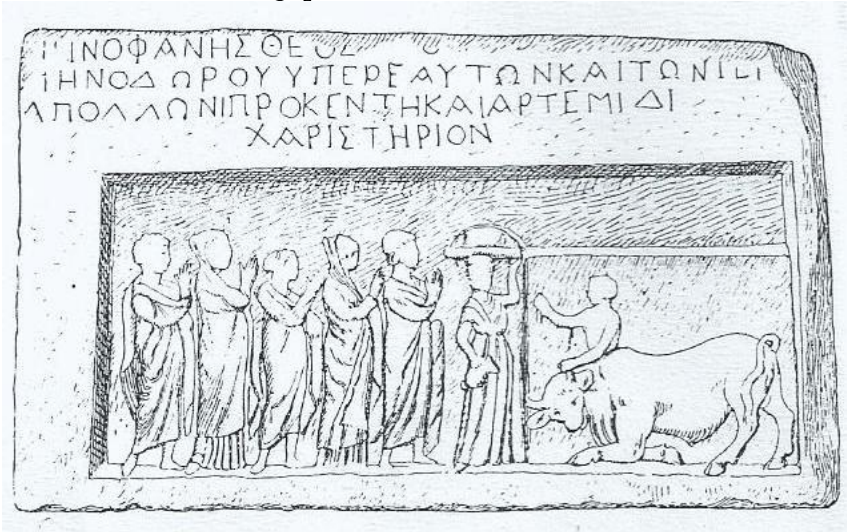 ΙΝΟΦΑΝΗΣ ΘΕΟΣ
ΗΝΟΔΩΡΟΥ ΥΠΕΡ ΕΑΥΤΩΝ ΚΑΙ ΤΩΝ
ΑΠΟΛΛΩΝΙ ΠΡΟΚΕΝΤΗ ΚΑΙ ΑΡΤΕΜΙΔΙ
ΧΑΡΙΣΤΗΡΙΟΝ